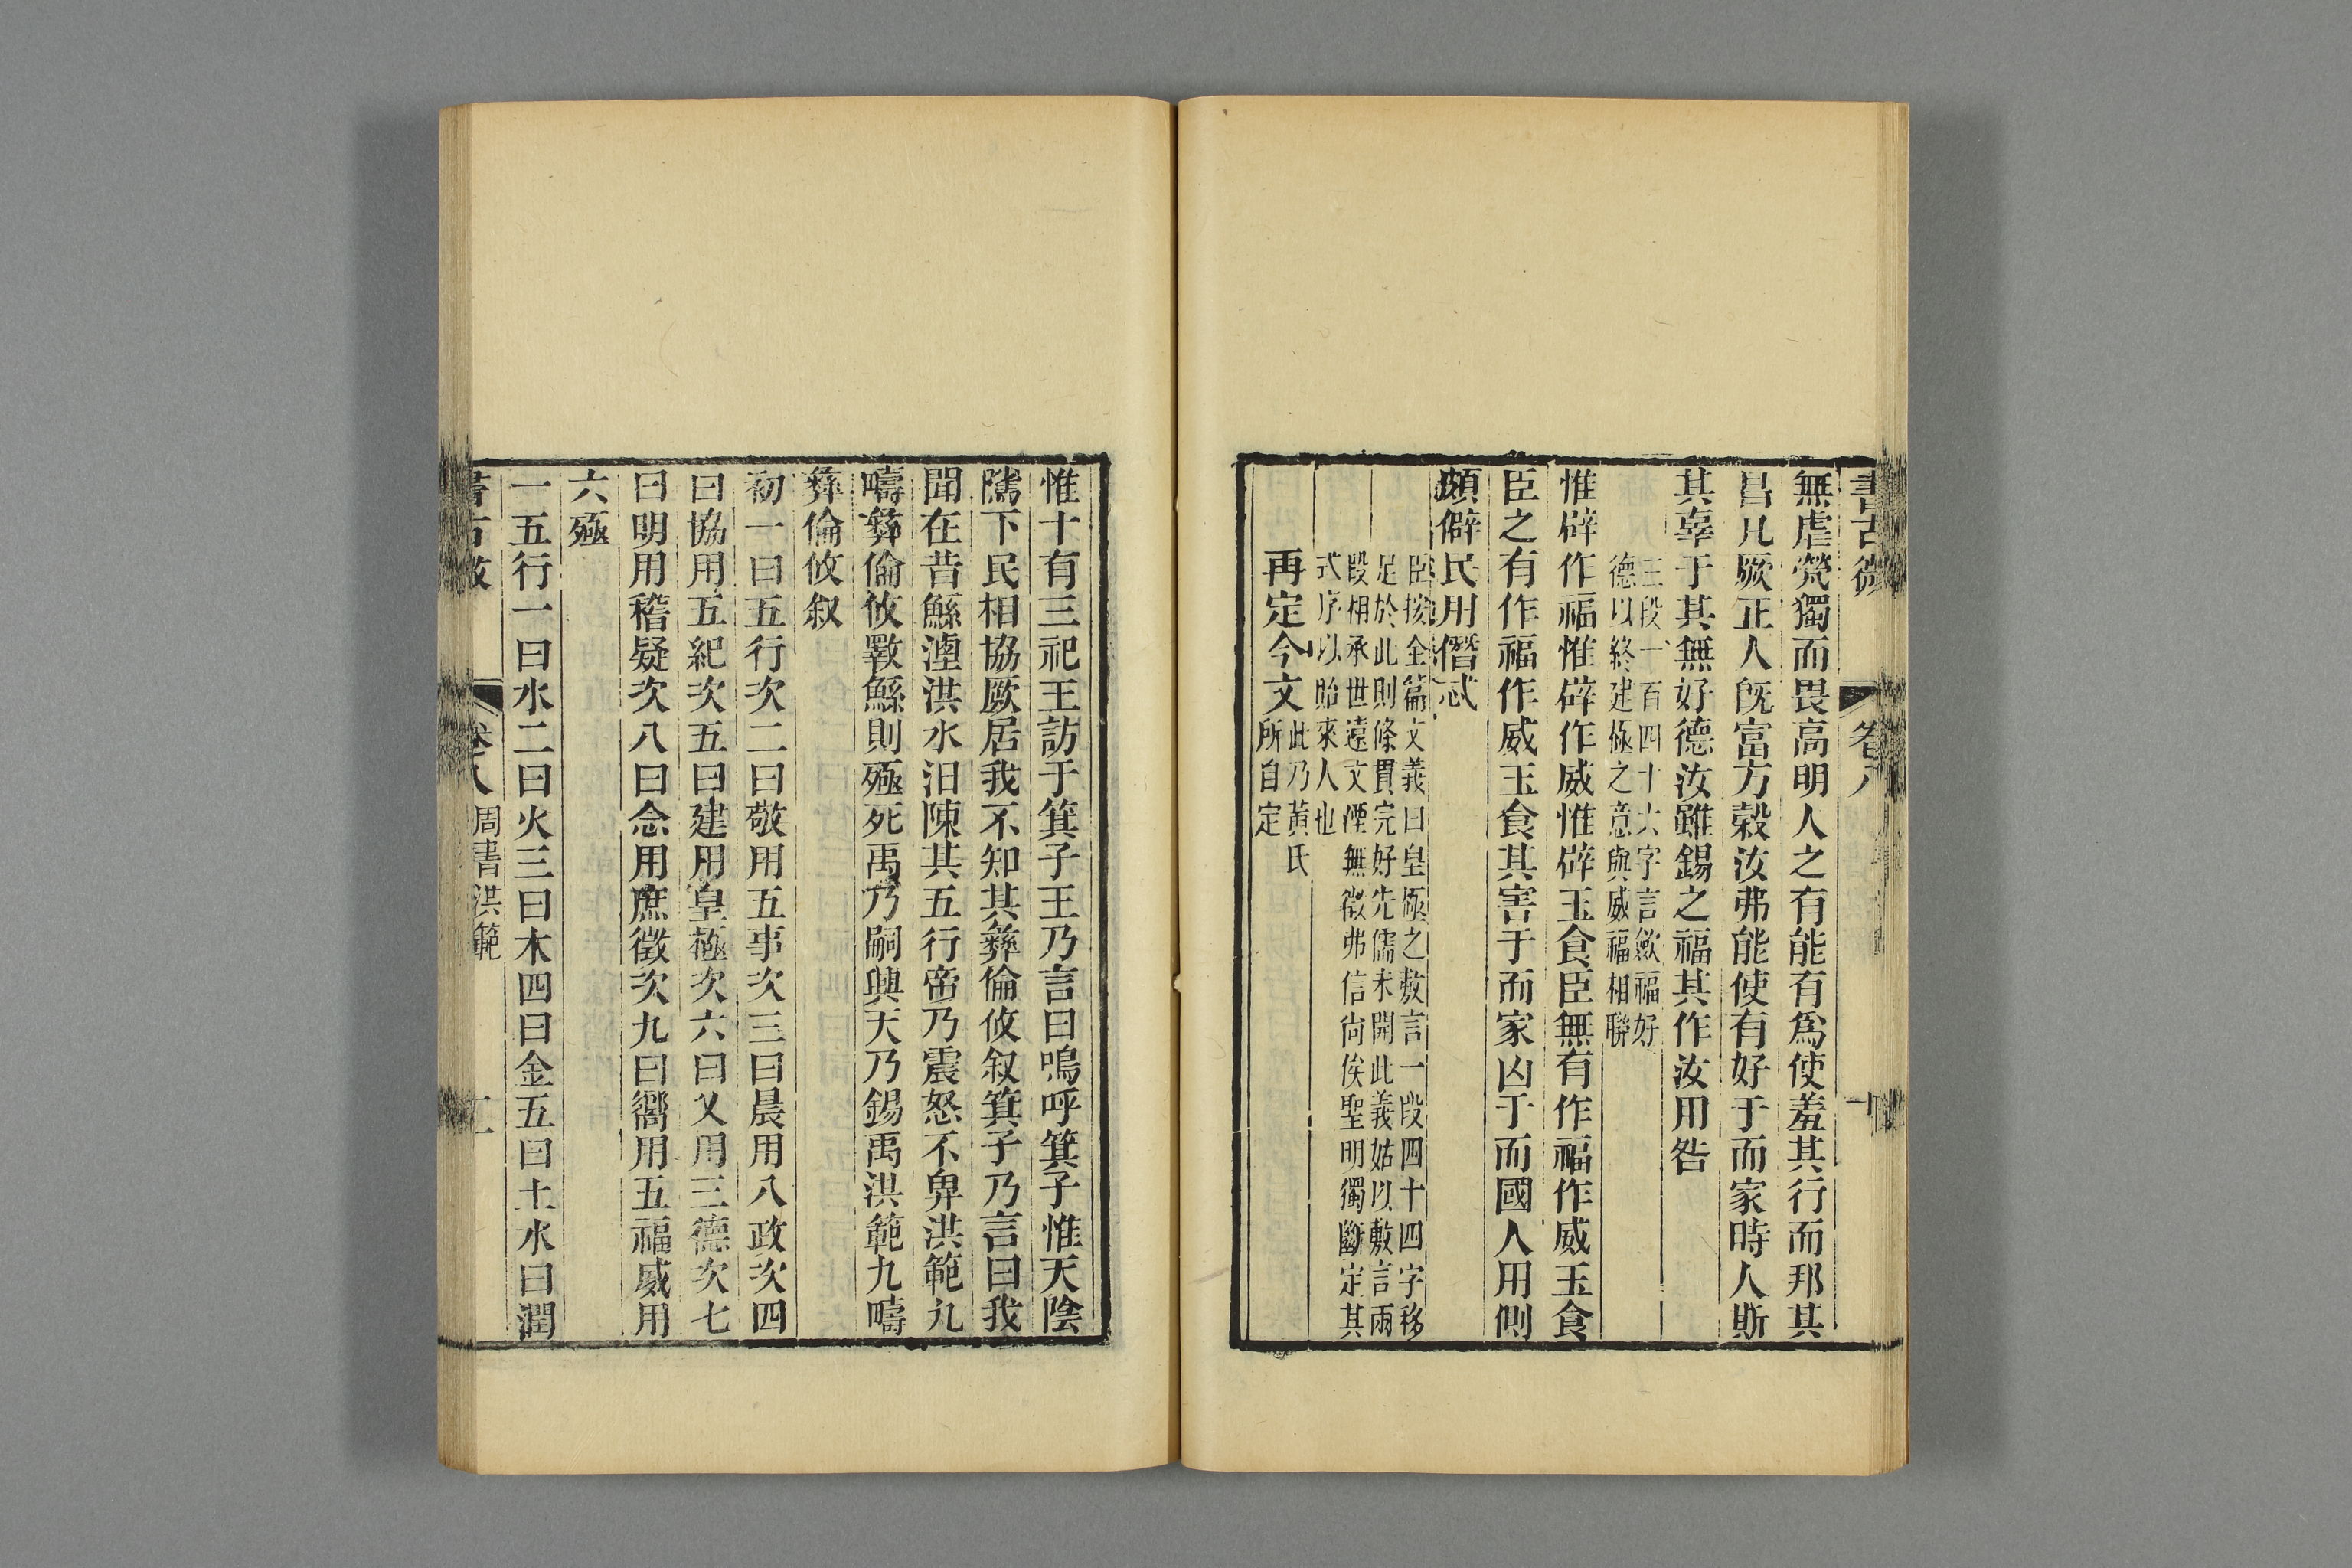 書古微 卷八
無虐煢獨而畏高明人之有能有爲使羞其行而邦其
昌凡厥正人旣富方榖汝弗能使有好于而家時人斯
其辜于其無好德汝雖錫之福其作汝用咎
三段一百四十六字言斂福好
德以終建極之意與威福相聯
惟辟作福惟辟作威惟辟玉食臣無有作福作威玉食
臣之有作福作威玉食其害于而家凶于而國人用側
頗僻民用僭忒
臣按全篇文義曰皇極之敷言一段四十四字移
足於此則條貫完好先儒未開此義姑以敷言兩
段相承世遠文湮無徵弗信尙俟聖明獨斷定其
式序以貽來人也
再定今文
此乃黃氏
所自定
惟十有三祀王訪于箕子王乃言曰嗚呼箕子惟天陰
隲下民相協厥居我不知其彝倫攸叙箕子乃言曰我
聞在昔鯀湮洪水汨陳其五行帝乃震怒不畀洪範九
疇彝倫攸斁鯀則殛死禹乃嗣興天乃錫禹洪範九疇
彝倫攸叙
初一曰五行次二曰敬用五事次三曰晨用八政次四
曰協用五紀次五曰建用皇極次六曰乂用三德次七
曰明用稽疑次八曰念用庶徵次九曰嚮用五福威用
六殛
一五行一曰水二曰火三曰木四曰金五曰土水曰潤
書古微 卷八 周書洪範